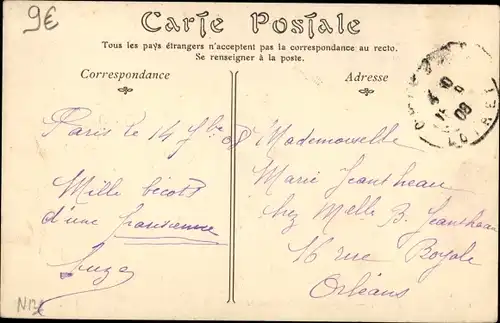 9€
Carte Postale
Tous les pays étrangers n'acceptent pas la correspondance au recto.
Se renseigner à la poste.
Correspondance
Adresse
Paris le 14 7bre 08
Mille bécots
d'une parisienne
Suze
Mademoiselle
Marie Jeantheau
chez Melle B. Jeantheau
16 rue Royale
Orléans
15 9
08
LOIRET